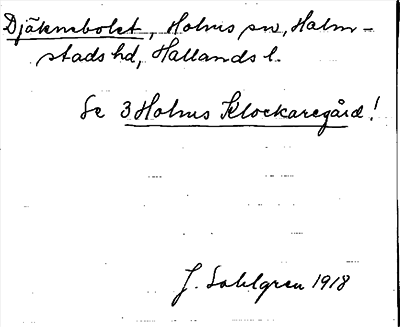 Djäknebolet, Holms sn, Halm-
stads hd, Hallands l.
Se 3 Holms Klockaregård!
J. Sahlgren 1918